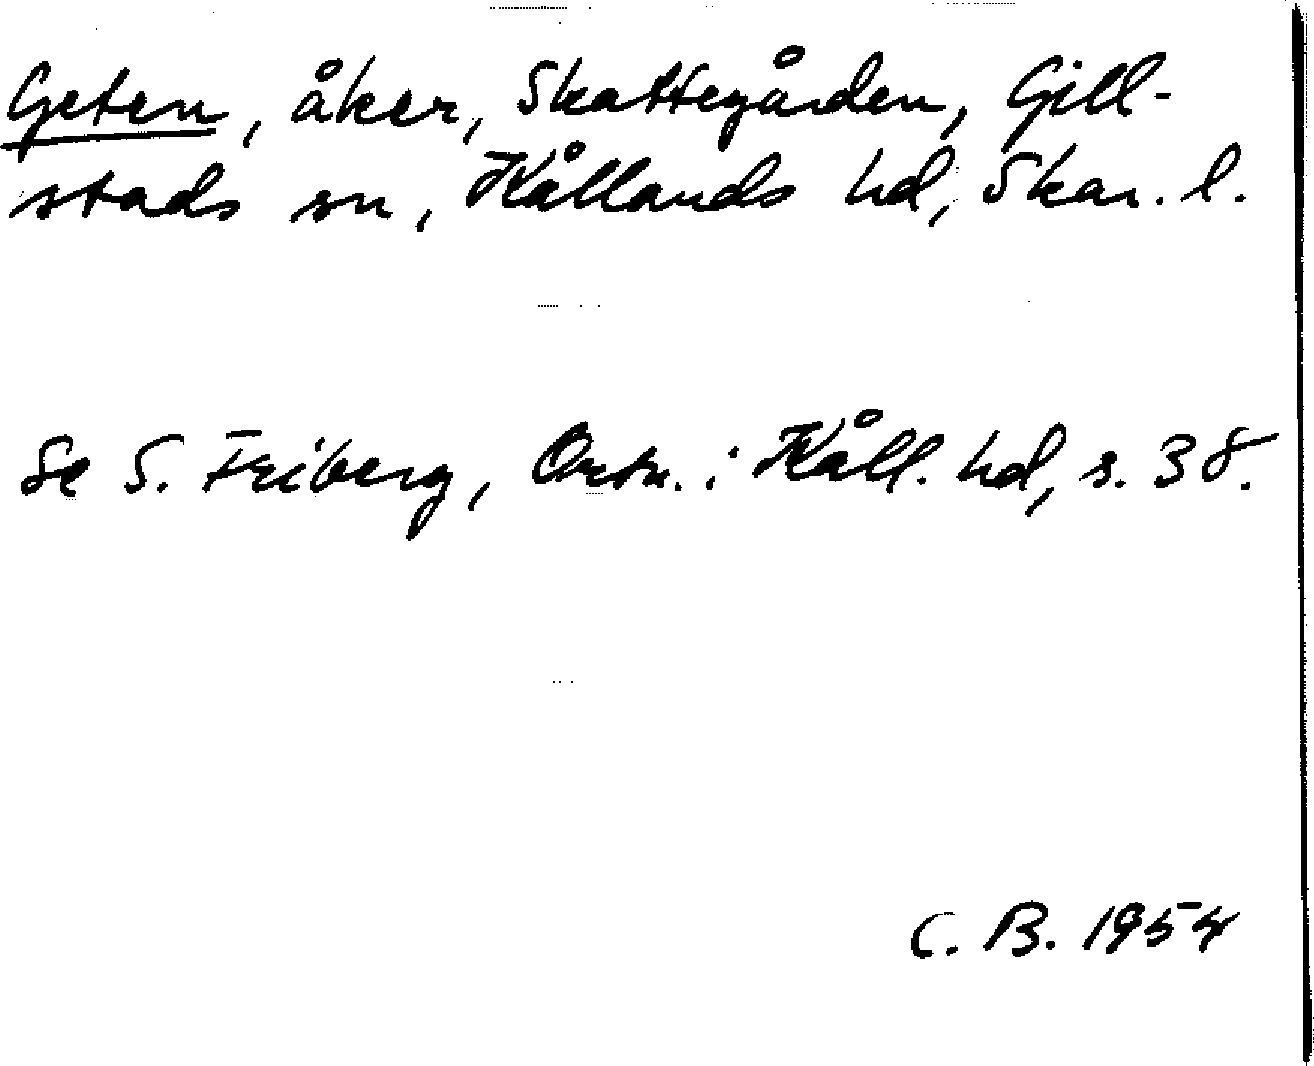 Geten, åker, Skattegården, Gill-
stads sn, Kållands hd, Skar. l.
Se S. Friberg, Ortn. i Kåll. hd, s. 38.
C. B. 1954